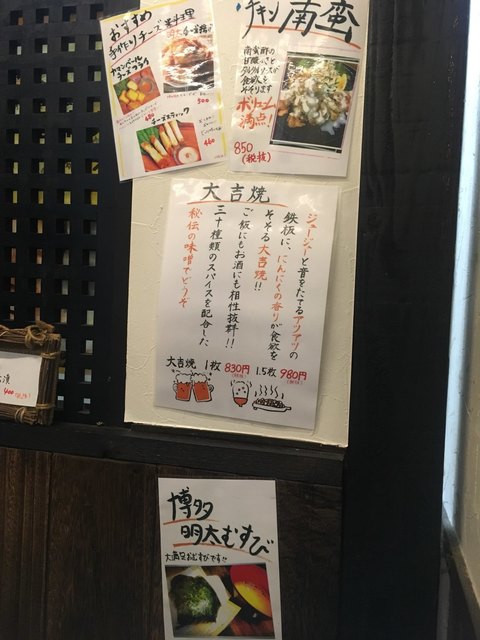 おすすめ
手作りチーズ料理
カマンベール
チーズフライ
480
500
チーズスティック
460
チキン南蛮
南蛮酢の
甘酸っぱさと
タルタルソースが
食欲を
そそります
ボリューム
満点!
850
(税抜)
大吉焼
ジュージューと音をたてるアツアツの
鉄板に、にんにくの香りが食欲を
そそる大吉焼!!
ご飯にもお酒にも相性抜群!!
三十種類のスパイスを配合した
秘伝の味噌でどうぞ
大吉焼 1枚 830円(税抜) 1.5枚 980円(税抜)
漬
400
博多
明太むすび
大満足おむすびです!!